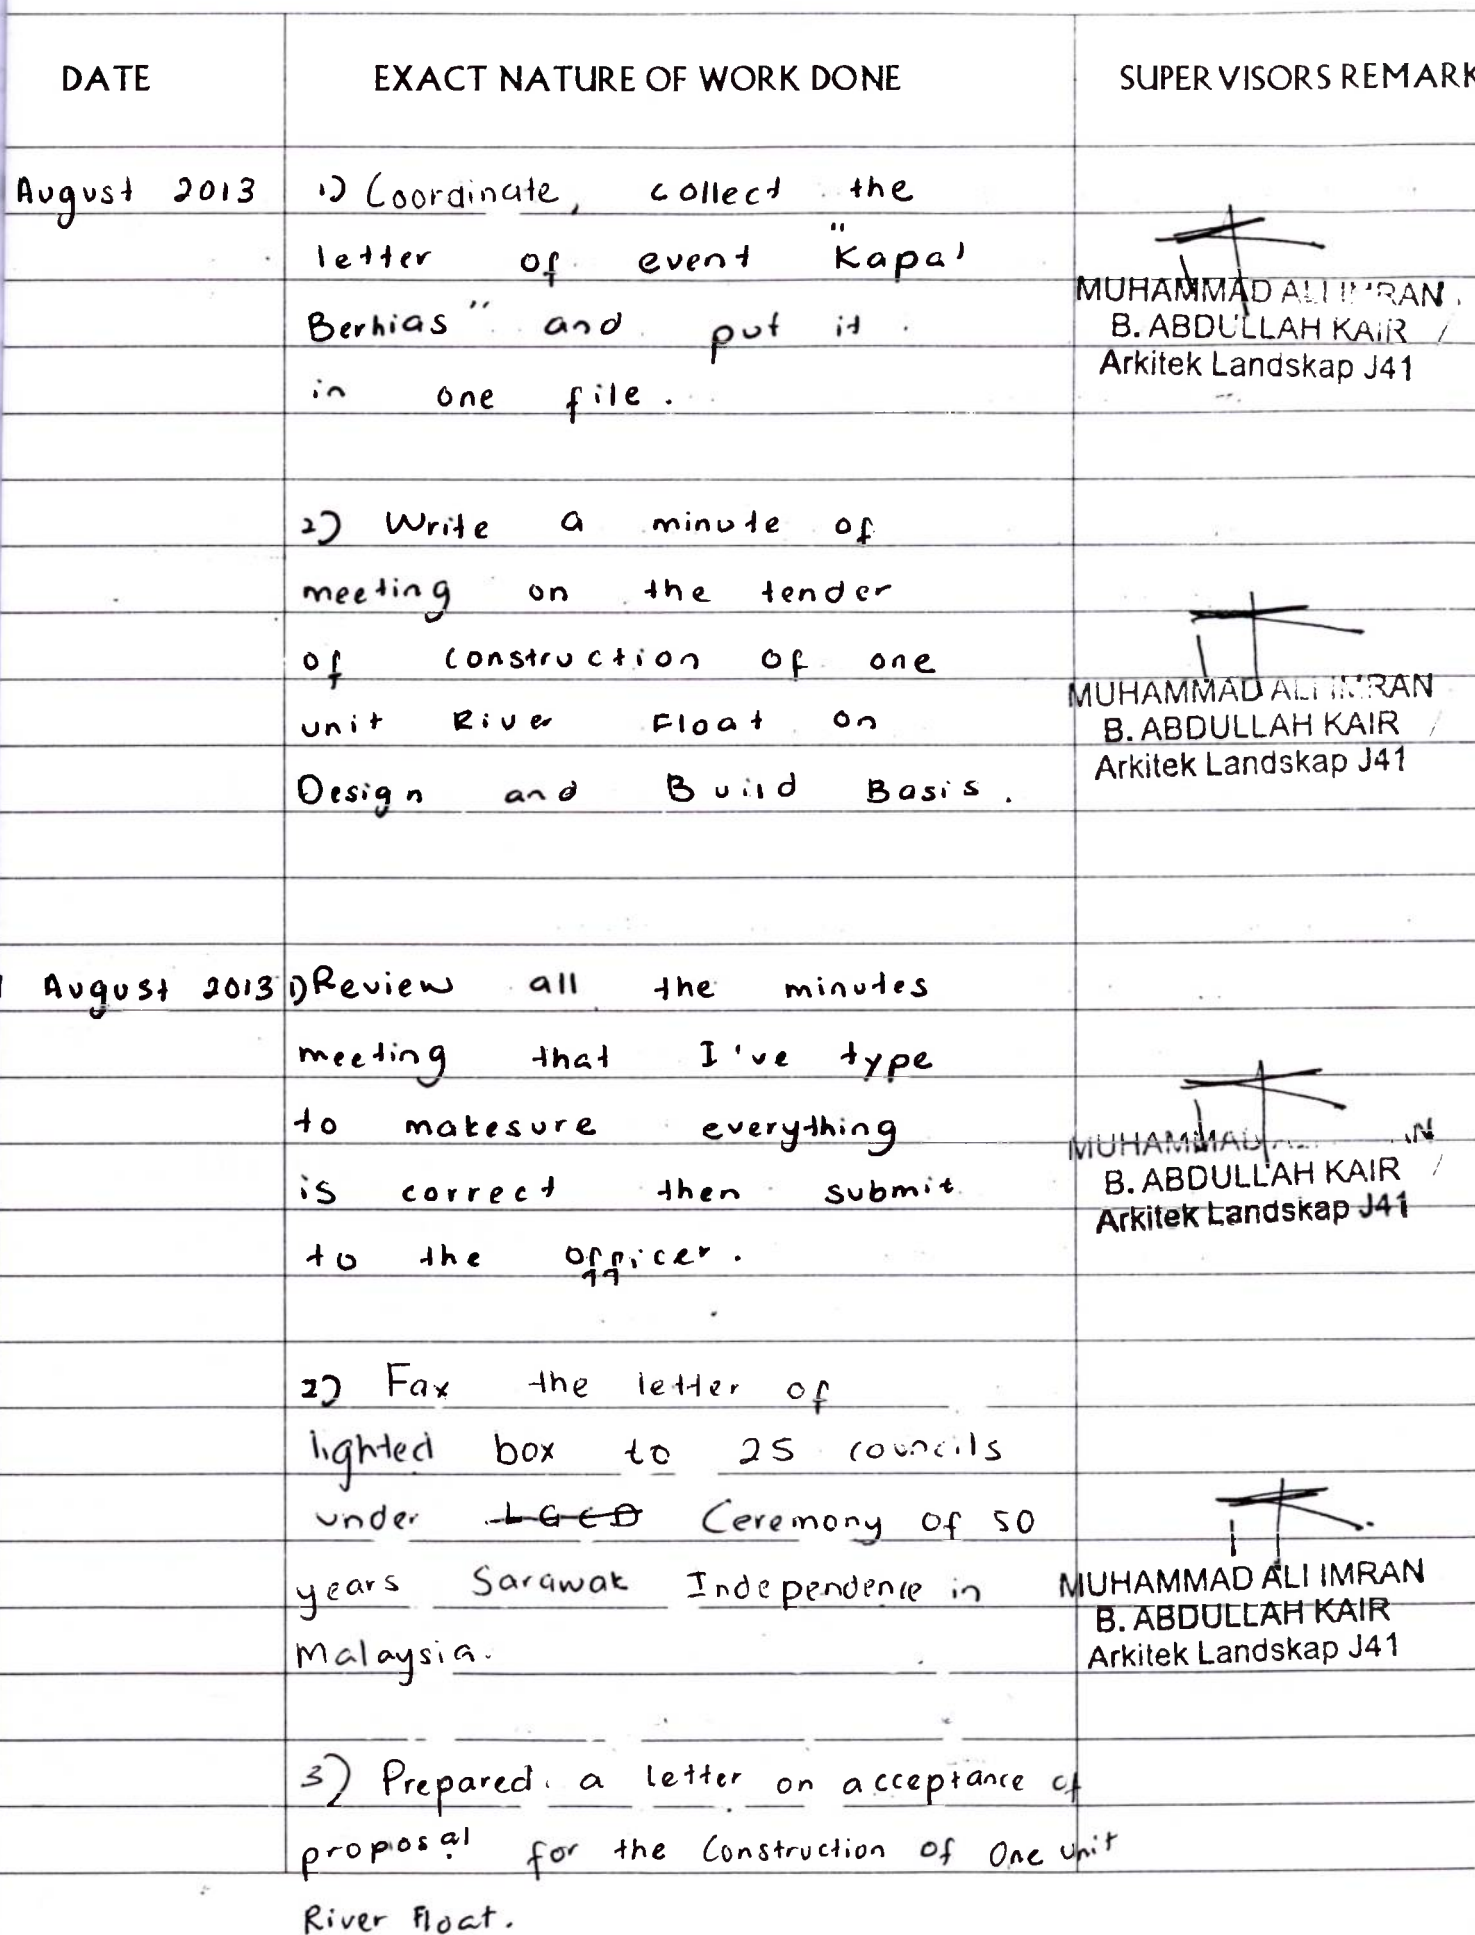 DATE EXACT NATURE OF WORK DONE SUPERVISORS REMARK
August 2013 1) Coordinate, collect the
letter of event "Kapal
Berhias" and put it
in one file.
MUHAMMAD ALI IMRAN
B. ABDULLAH KAIR
Arkitek Landskap J41
2) Write a minute of
meeting on the tender
of construction of one
unit River Float on
Design and Build Basis.
MUHAMMAD ALI IMRAN
B. ABDULLAH KAIR
Arkitek Landskap J41
August 2013 1) Review all the minutes
meeting that I've type
to makesure everything
is correct then submit
to the officer.
MUHAMMAD
B. ABDULLAH KAIR
Arkitek Landskap J41
2) Fax the letter of
lighted box to 25 councils
under LGCD Ceremony of 50
years Sarawak Independence in
Malaysia.
MUHAMMAD ALI IMRAN
B. ABDULLAH KAIR
Arkitek Landskap J41
3) Prepared a letter on acceptance of
proposal for the Construction of One unit
River Float.